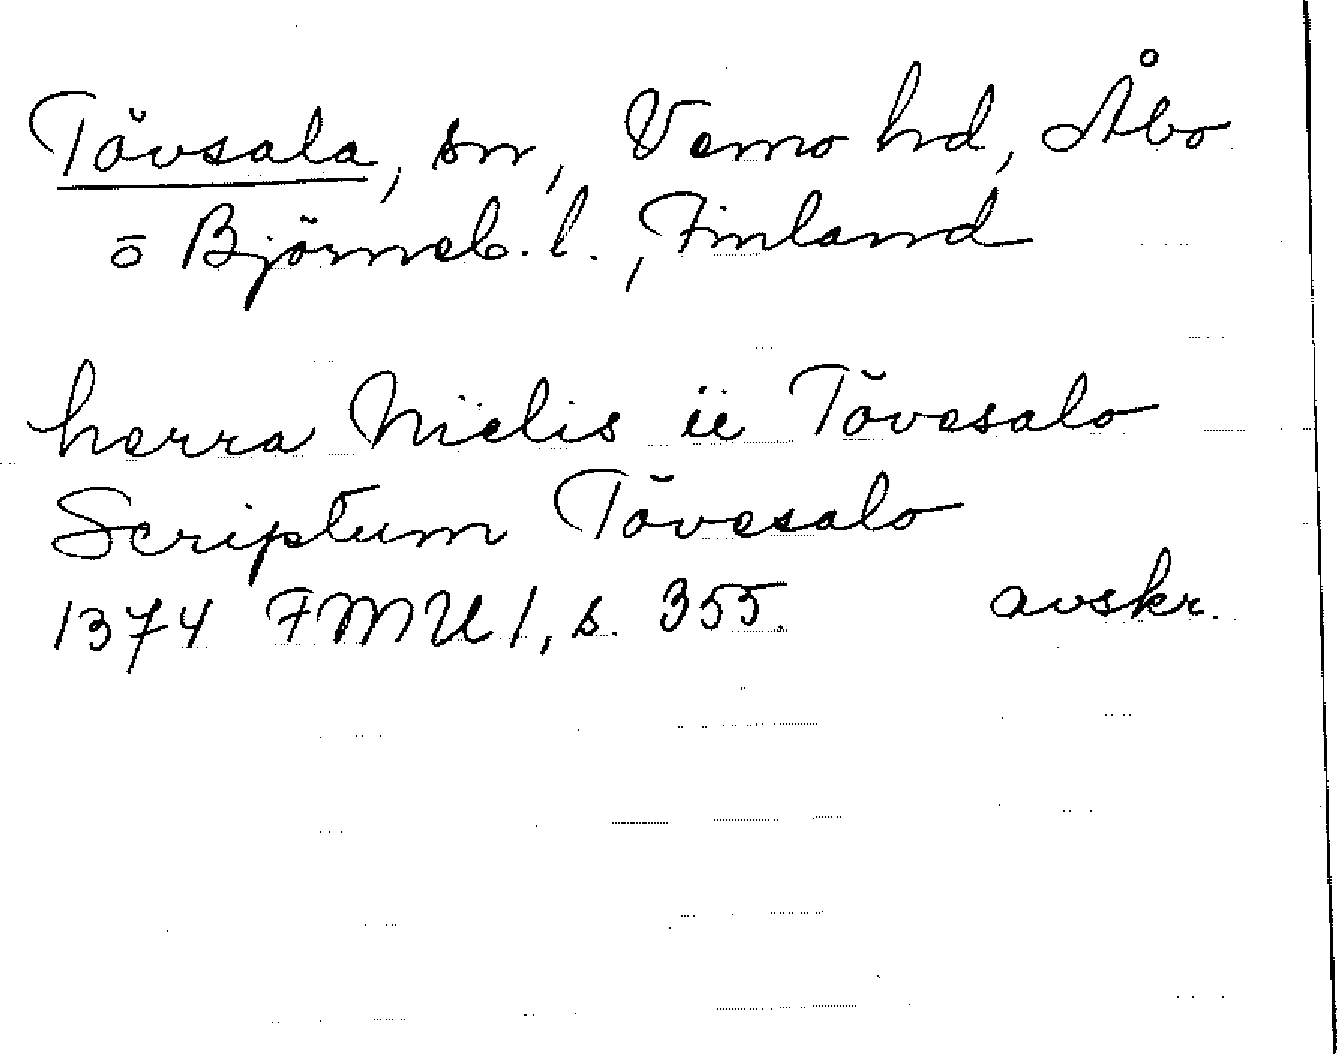 Tövsala, sn, Vemo hd, Åbo
o Björneb. l., Finland
herra Nielis ii Tövesalo
Scriptum Tövesalo
1374 FMU 1, s. 355. avskr.